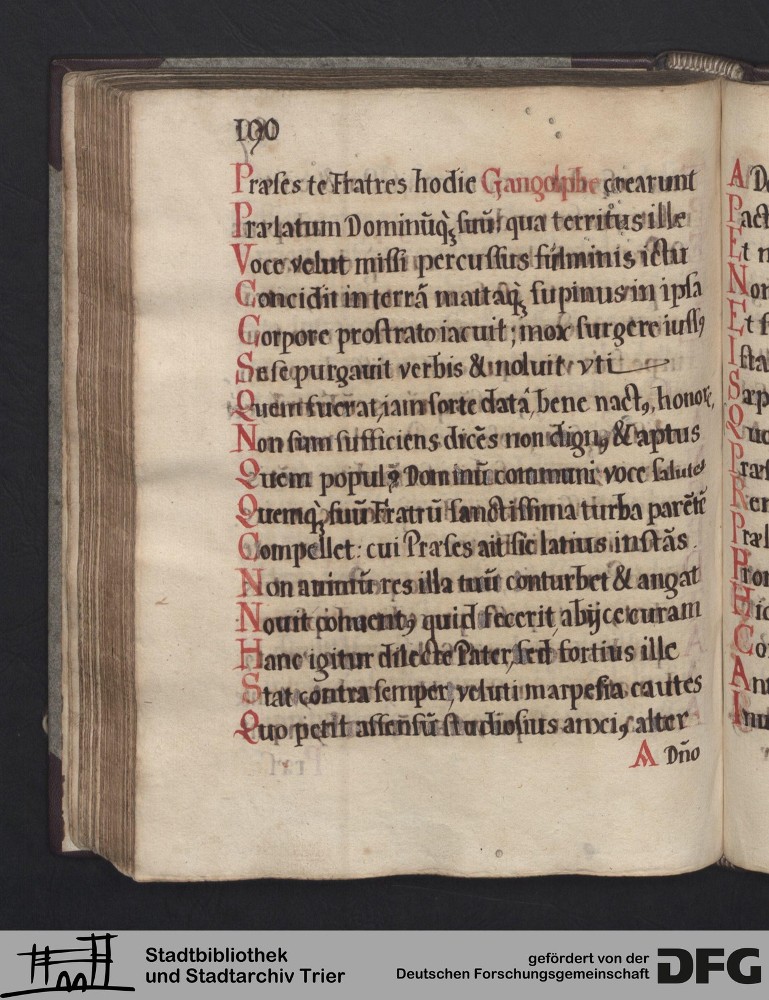 190
Præses te Fratres hodie Gangolphe crearunt
Prælatum Dominūqꝫ suū: qua territus ille
Voce velut missi percussus fulminis ictu
Concidit in terrā mattaqꝫ supinus in ipsa
Corpore prostrato iacuit; mox surgere iussꝰ
Sese purgauit verbis & noluit, vti
Quem fuerat, iam sorte data, bene nactꝰ, honorē,
Non sum sufficiens dicēs non dignꝰ & aptus
Quem populꝰ Dominū communi voce salutet
Quemqꝫ suū Fratrū sanctissima turba parētē
Compellet: cui Præses ait sic latius instās
Non animū res illa tuū conturbet & angat
Nouit conuentꝰ quid fecerit, abijce curam
Hanc igitur dilecte Pater, sed fortius ille
Stat contra semper, veluti marpesia cautes
Quo petit assensū studiosius anxiꝰ, alter
A Dn̄o
A D
Pact
Et n
Non
Et
Ista
Sæp
Præs
Præl
Hic
Stadtbibliothek
und Stadtarchiv Trier
gefördert von der
Deutschen Forschungsgemeinschaft
DFG